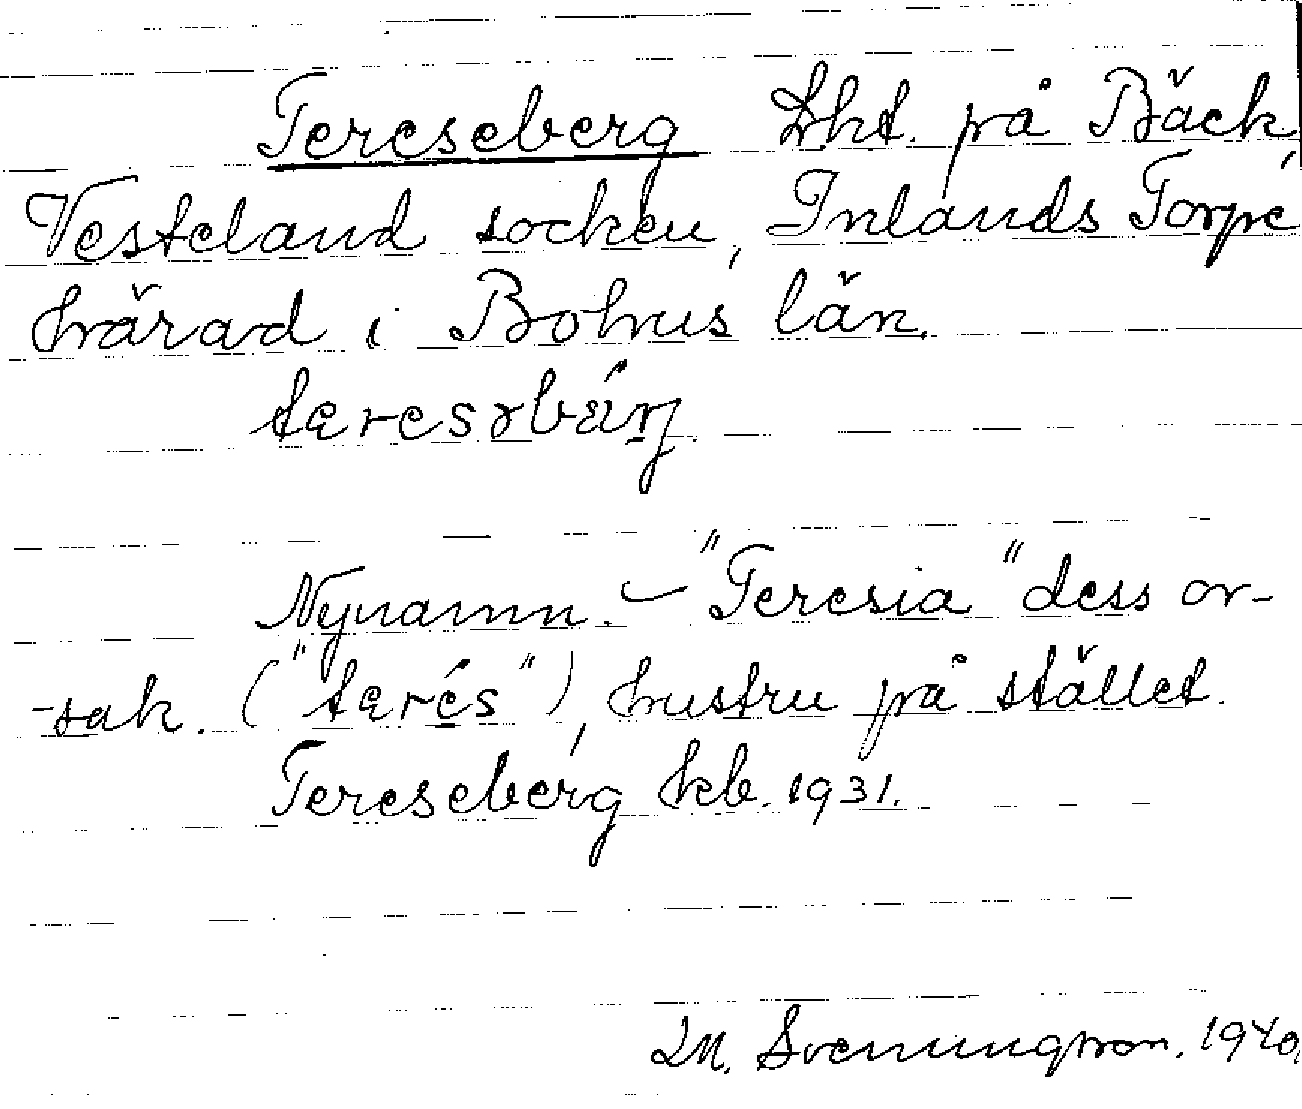 Tereseberg Lht. på Bäck,
Vesteland socken, Inlands Torpe
härad i Bohus län.
Nynamn. – "Teresia" dess or-
-sak. ("terés"), hustru på stället.
Tereseberg kb. 1931.
M. Svenungsson. 1940.